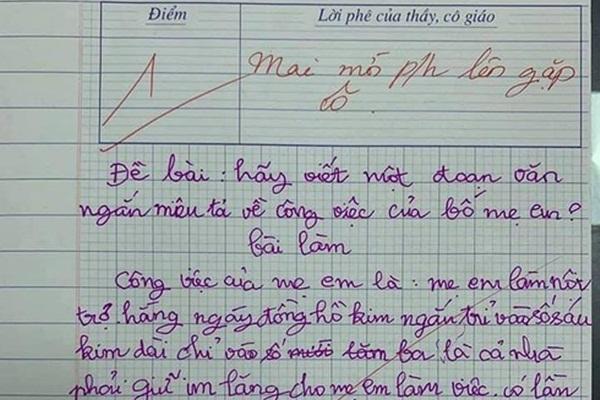 Điểm
Lời phê của thầy, cô giáo
1
Mai mời p/h lên gặp
cô
Đề bài: hãy viết một đoạn văn
ngắn miêu tả về công việc của bố mẹ em?
bài làm
Công việc của mẹ em là: mẹ em làm nội
trợ hàng ngày đồng hồ kim ngắn trỉ vào số sáu
kim dài chỉ vào số mười lăm ba là cả nhà
phải giữ im lặng cho mẹ em làm việc. có lần